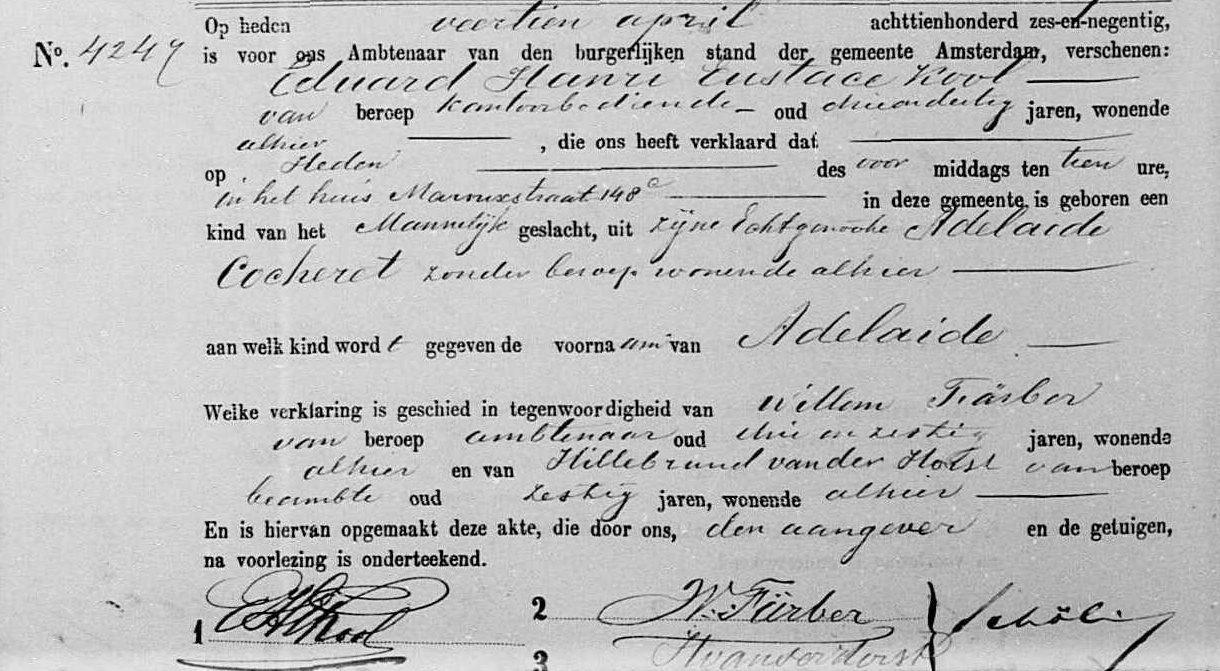 Op heden veertien april achttienhonderd zes-en-negentig,
No. 4249 is voor ons Ambtenaar van den burgerlijken stand der gemeente Amsterdam, verschenen:
Eduard Hanri Eustace Kool
van beroep kantoorbediende oud drieendertig jaren, wonende
alhier , die ons heeft verklaard dat
op Heden des voor middags ten tien ure,
in het huis Marnixstraat 148 c in deze gemeente is geboren een
kind van het Mannelijk geslacht, uit zijne Echtgenoote Adelaide
Cocheret zonder beroep wonende alhier
aan welk kind wordt gegeven de voornaam van Adelaide
Welke verklaring is geschied in tegenwoordigheid van Willem Färber
van beroep ambtenaar oud drie en zestig jaren, wonende
alhier en van Hillebrand van der Horst van beroep
beambte oud zestig jaren, wonende alhier
En is hiervan opgemaakt deze akte, die door ons, den aangever en de getuigen,
na voorlezing is onderteekend.
1 EHEKool 2 W. Färber
3 HvanderHorst